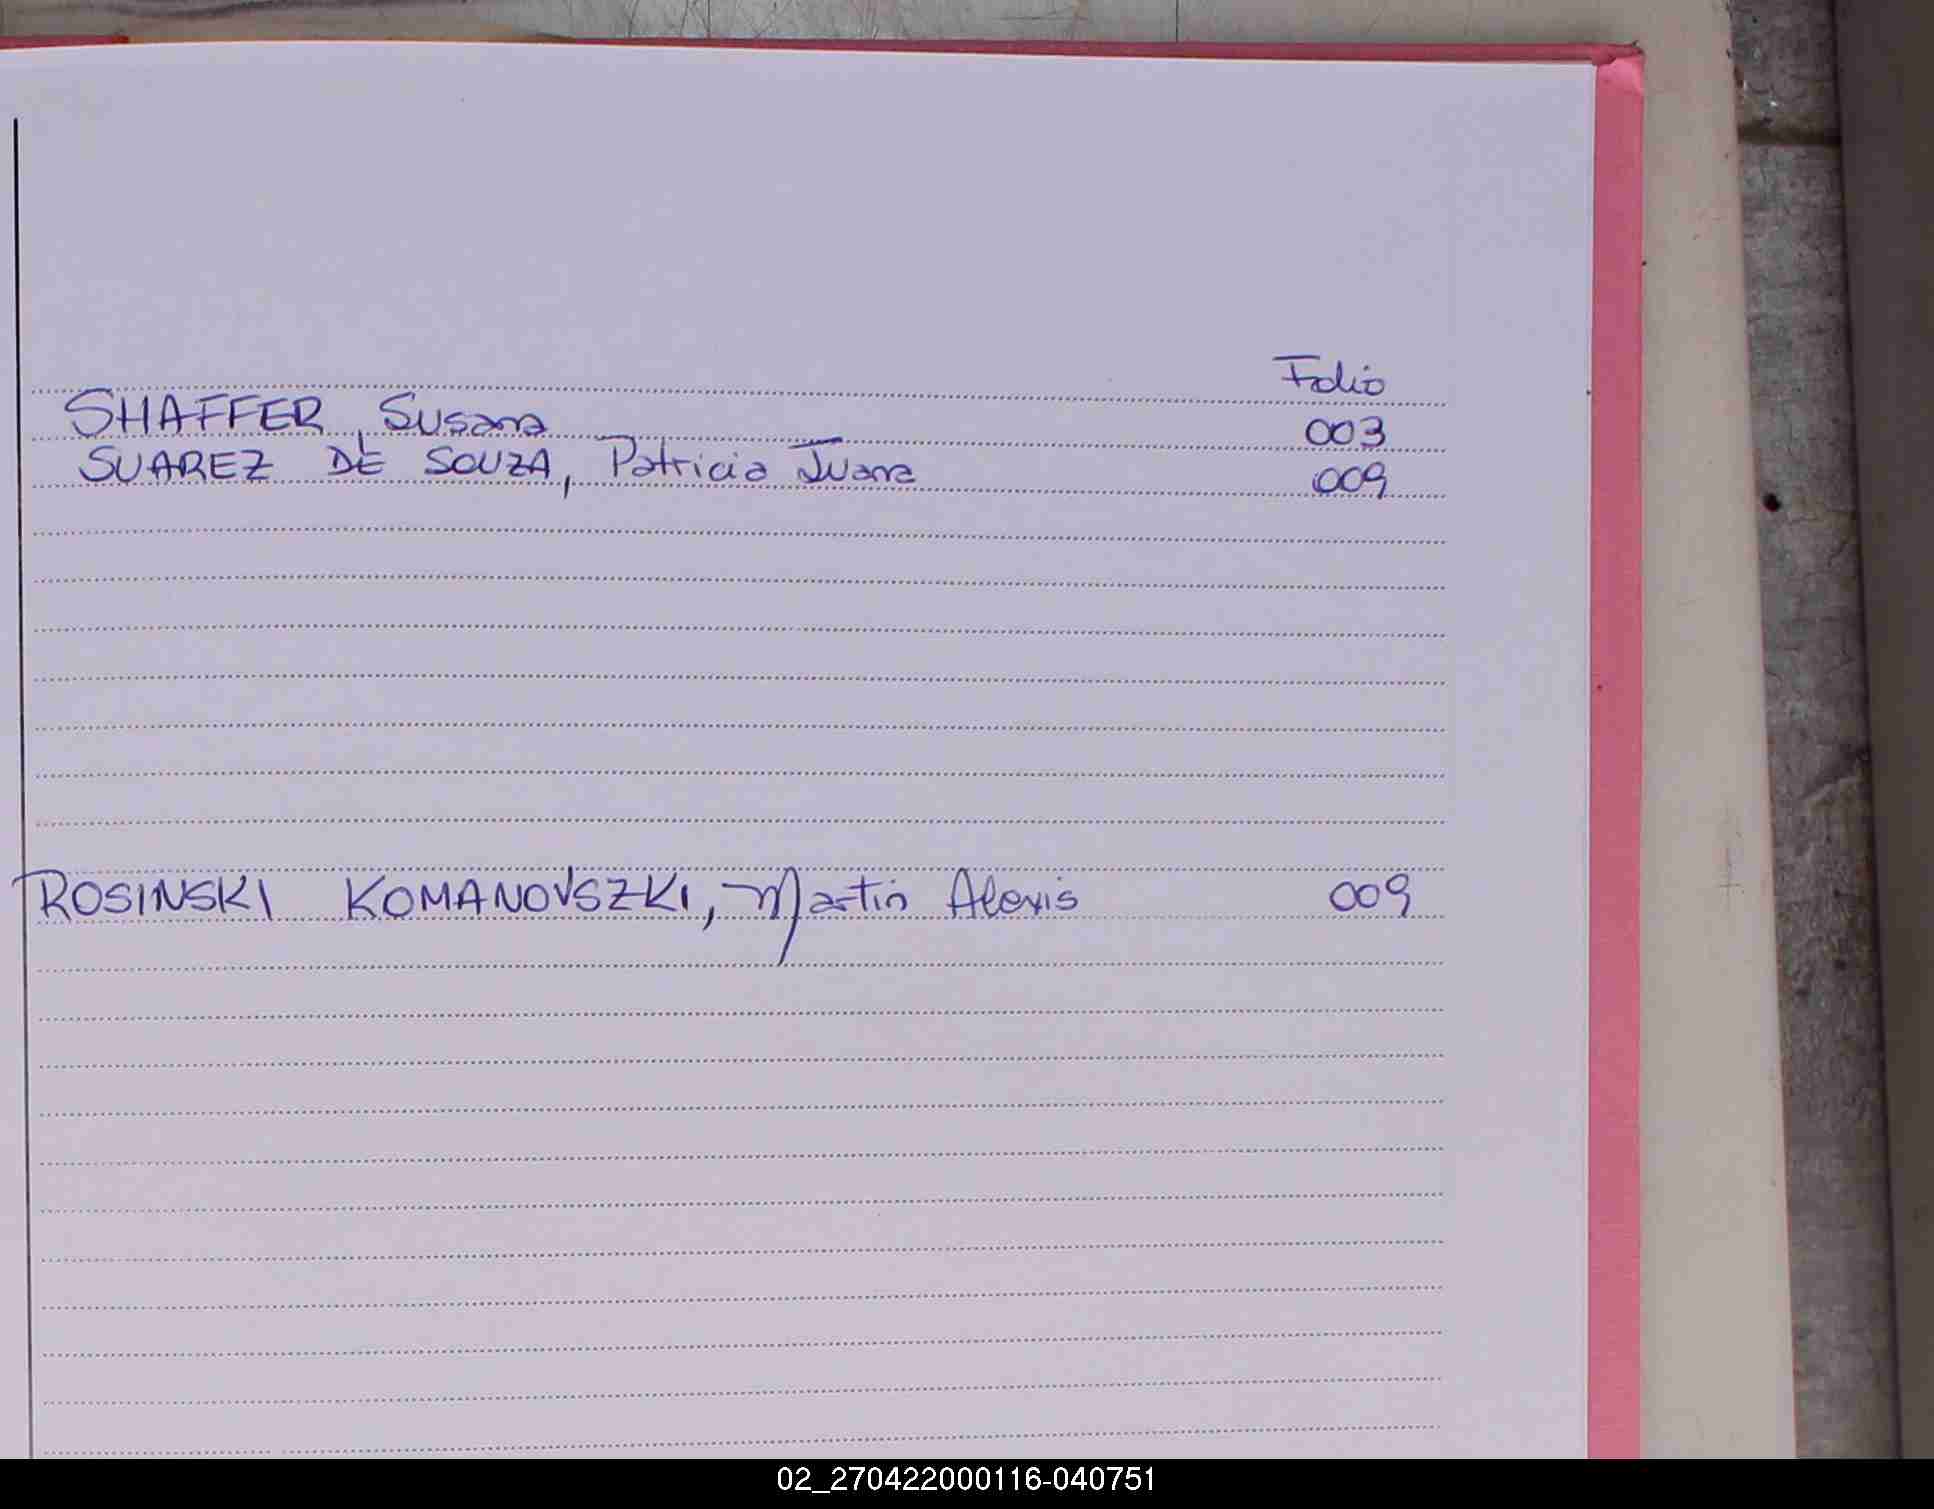 Folio
SHAFFER, Susana 003
SUAREZ DE SOUZA, Patricia Juana 009
ROSINSKI KOMANOVSZKI, Martin Alexis 009
02_270422000116-040751